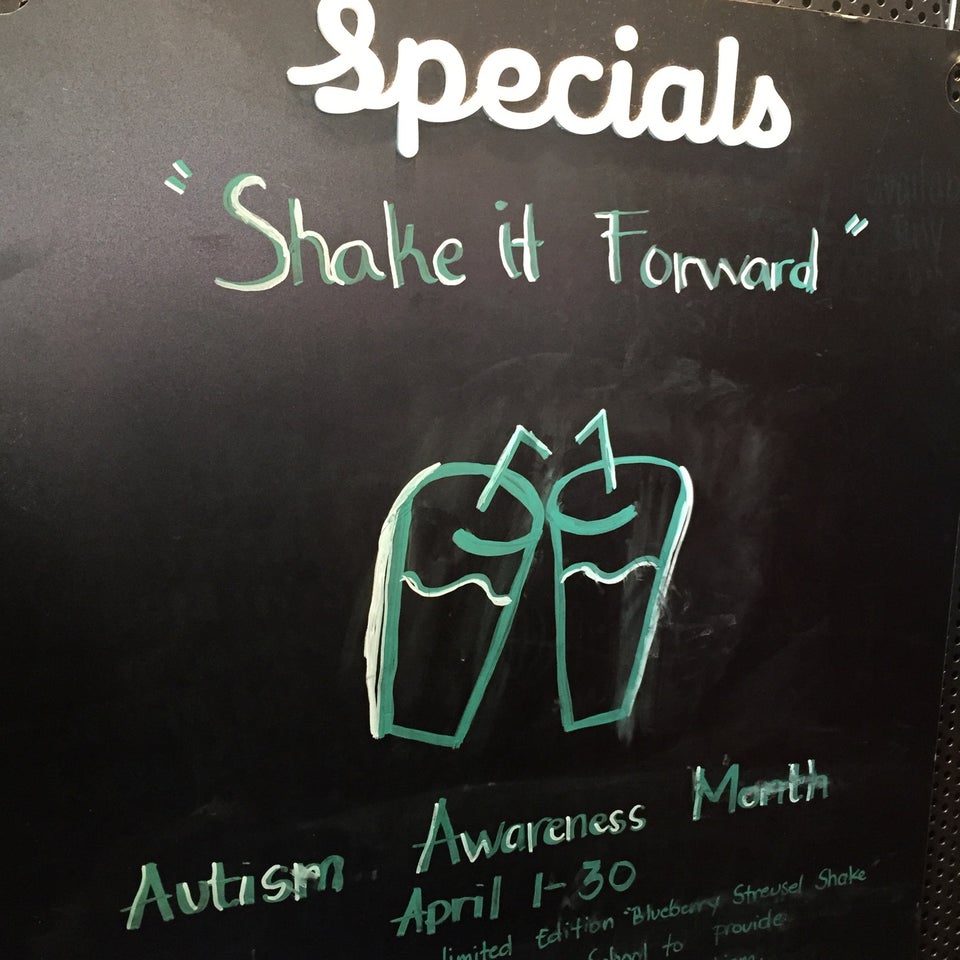 Specials
"Shake it Forward"
Autism Awareness Month
April 1-30
limited Edition "Blueberry Streusel Shake"
School to provide